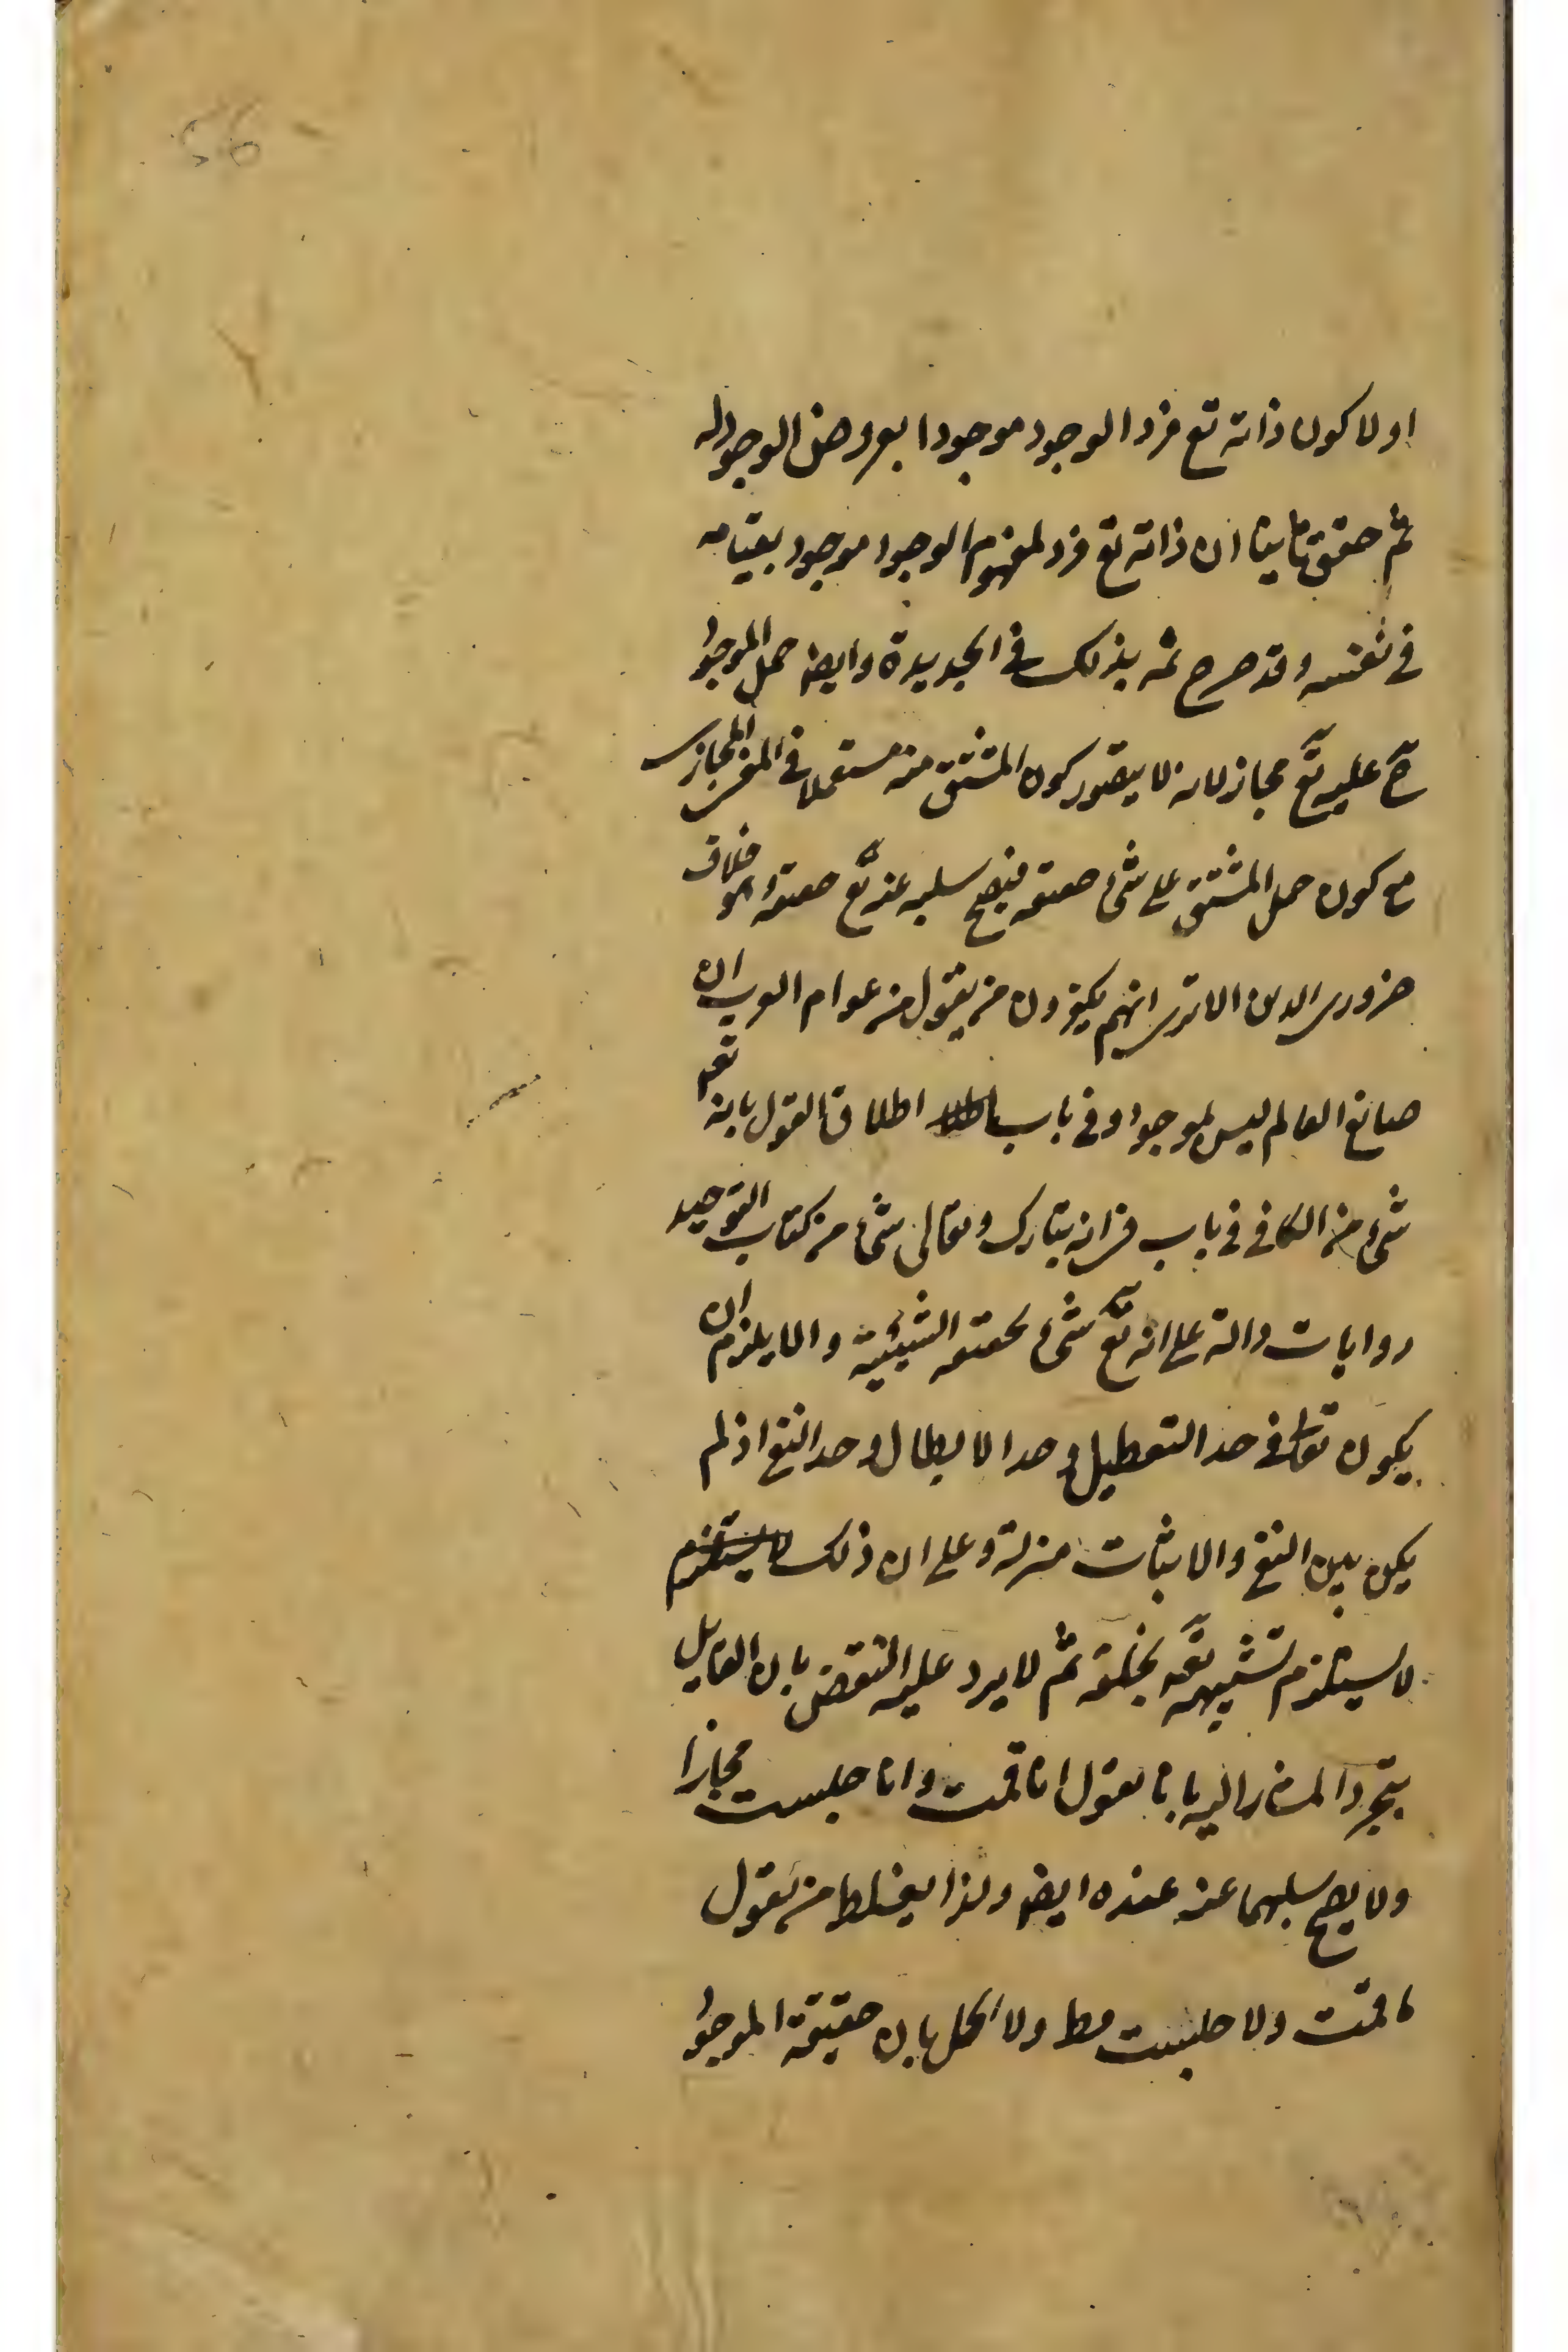 56
اولا كون ذاته تع فرد الوجود موجودا بعروض الوجود له
ثم حقق ثانيا ان ذاته تع فرد لمفهوم الوجود موجود بقيامه
فى نفسه وقد صرح ثمه بذلك فى الجديدة وايضا حمل الموجود
ح عليه تع مجاز لانه لا يتصور كون المشتق منه مستعملا فى المعنى المجازى
مع كون حمل المشتق على شىء حقيقة فيصح سلبه عنه تع حقيقة وهو خلاف
ضرورى الدين الا ترى انهم يكفرون من يقول من عوام العرب ان
صانع العالم ليس بموجود وفى باب اطلاق القول بانه تعه
شىء من الكافى فى باب فى انه تبارك وتعالى شىء من كتاب التوحيد
روايات دالة على انه تع شىء بحقيقة الشيئية والا يلزم ان
يكون تعالى فى حد التعطيل وحد الابطال وحد النفى اذ لم
يكن بين النفى والاثبات منزلة وعلى ان ذلك لا يستلزم
لا يستلزم تشبيهه تعه بخلقه ثم لا يرد عليه النقض بان القايل
بتجرد المشار اليه بانا يقول انا قمت وانا جلست مجازا
ولا يصح سلبهما عنه عنده ايضا ولذا يغلط من يقول
ما قمت ولا جلست قط ولا الحل بان حقيقة الموجود